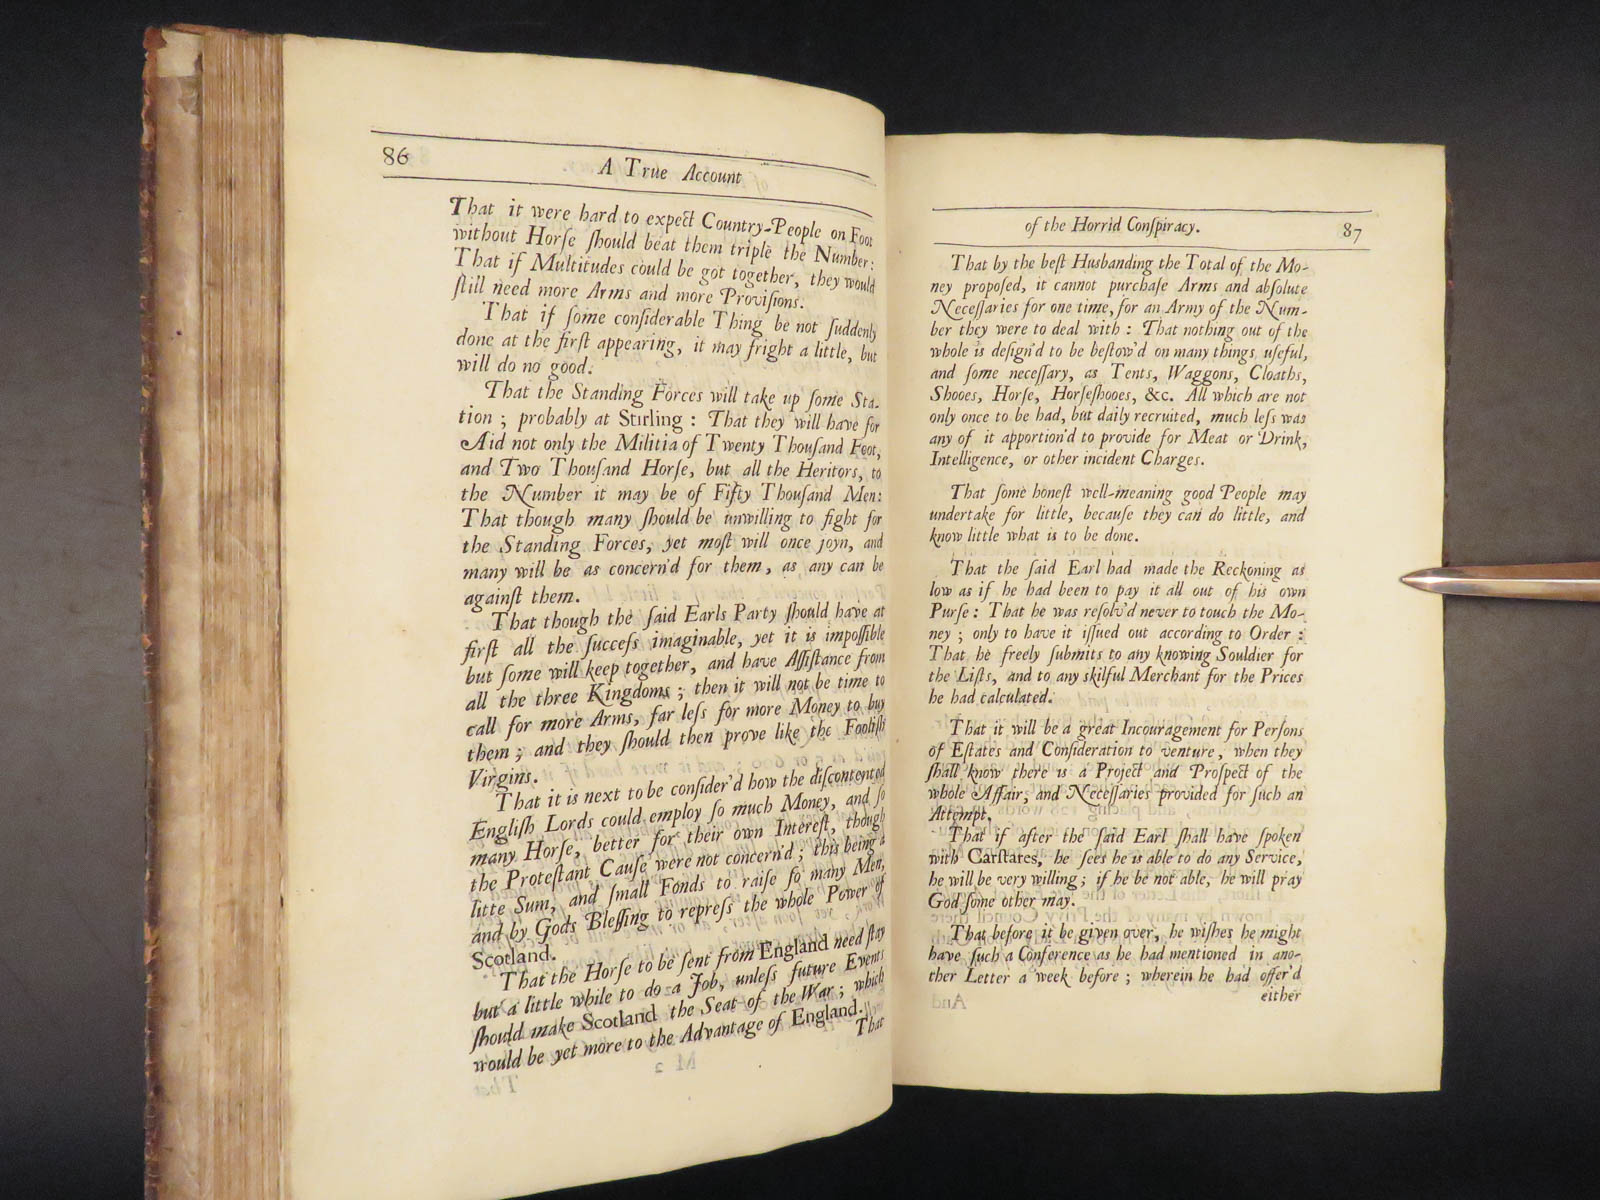 86
A True Account
That it were hard to expect Country-People on Foot
without Horſe ſhould beat them triple the Number:
That if Multitudes could be got together, they would
ſtill need more Arms and more Proviſions.
That if ſome conſiderable Thing be not ſuddenly
done at the firſt appearing, it may fright a little, but
will do no good.
That the Standing Forces will take up ſome Sta-
tion; probably at Stirling: That they will have for
Aid not only the Militia of Twenty Thouſand Foot,
and Two Thouſand Horſe, but all the Heritors, to
the Number it may be of Fifty Thouſand Men:
That though many ſhould be unwilling to fight for
the Standing Forces, yet moſt will once joyn, and
many will be as concern'd for them, as any can be
againſt them.
That though the ſaid Earls Party ſhould have at
firſt all the ſucceſs imaginable, yet it is impoſſible
but ſome will keep together, and have Aſſiſtance from
all the three Kingdoms; then it will not be time to
call for more Arms, far leſs for more Money to buy
them; and they ſhould then prove like the Fooliſh
Virgins.
That it is next to be conſider'd how the diſcontented
Engliſh Lords could employ ſo much Money, and ſo
many Horſe, better for their own Intereſt, though
the Proteſtant Cauſe were not concern'd; this being a
litte Sum, and ſmall Fonds to raiſe ſo many Men,
and by Gods Bleſſing to repreſs the whole Power of
Scotland.
That the Horſe to be ſent from England need ſtay
but a little while to do a Job, unleſs future Events
ſhould make Scotland the Seat of the War; which
would be yet more to the Advantage of England.
That
of the Horrid Conſpiracy.
87
That by the beſt Husbanding the Total of the Mo-
ney propoſed, it cannot purchaſe Arms and abſolute
Neceſſaries for one time, for an Army of the Num-
ber they were to deal with: That nothing out of the
whole is deſign'd to be beſtow'd on many things uſeful,
and ſome neceſſary, as Tents, Waggons, Cloaths,
Shooes, Horſe, Horſeſhooes, &c. All which are not
only once to be had, but daily recruited, much leſs was
any of it apportion'd to provide for Meat or Drink,
Intelligence, or other incident Charges.
That ſome honeſt well-meaning good People may
undertake for little, becauſe they can do little, and
know little what is to be done.
That the ſaid Earl had made the Reckoning as
low as if he had been to pay it all out of his own
Purſe: That he was reſolv'd never to touch the Mo-
ney; only to have it iſſued out according to Order:
That he freely ſubmits to any knowing Souldier for
the Liſts, and to any skilful Merchant for the Prices
he had calculated.
That it will be a great Incouragement for Perſons
of Eſtates and Conſideration to venture, when they
ſhall know there is a Project and Proſpect of the
whole Affair, and Neceſſaries provided for ſuch an
Attempt.
That if after the ſaid Earl ſhall have ſpoken
with Carſtares, he ſees he is able to do any Service,
he will be very willing; if he be not able, he will pray
God ſome other may.
That before it be given over, he wiſhes he might
have ſuch a Conference as he had mentioned in ano-
ther Letter a week before; wherein he had offer'd
either